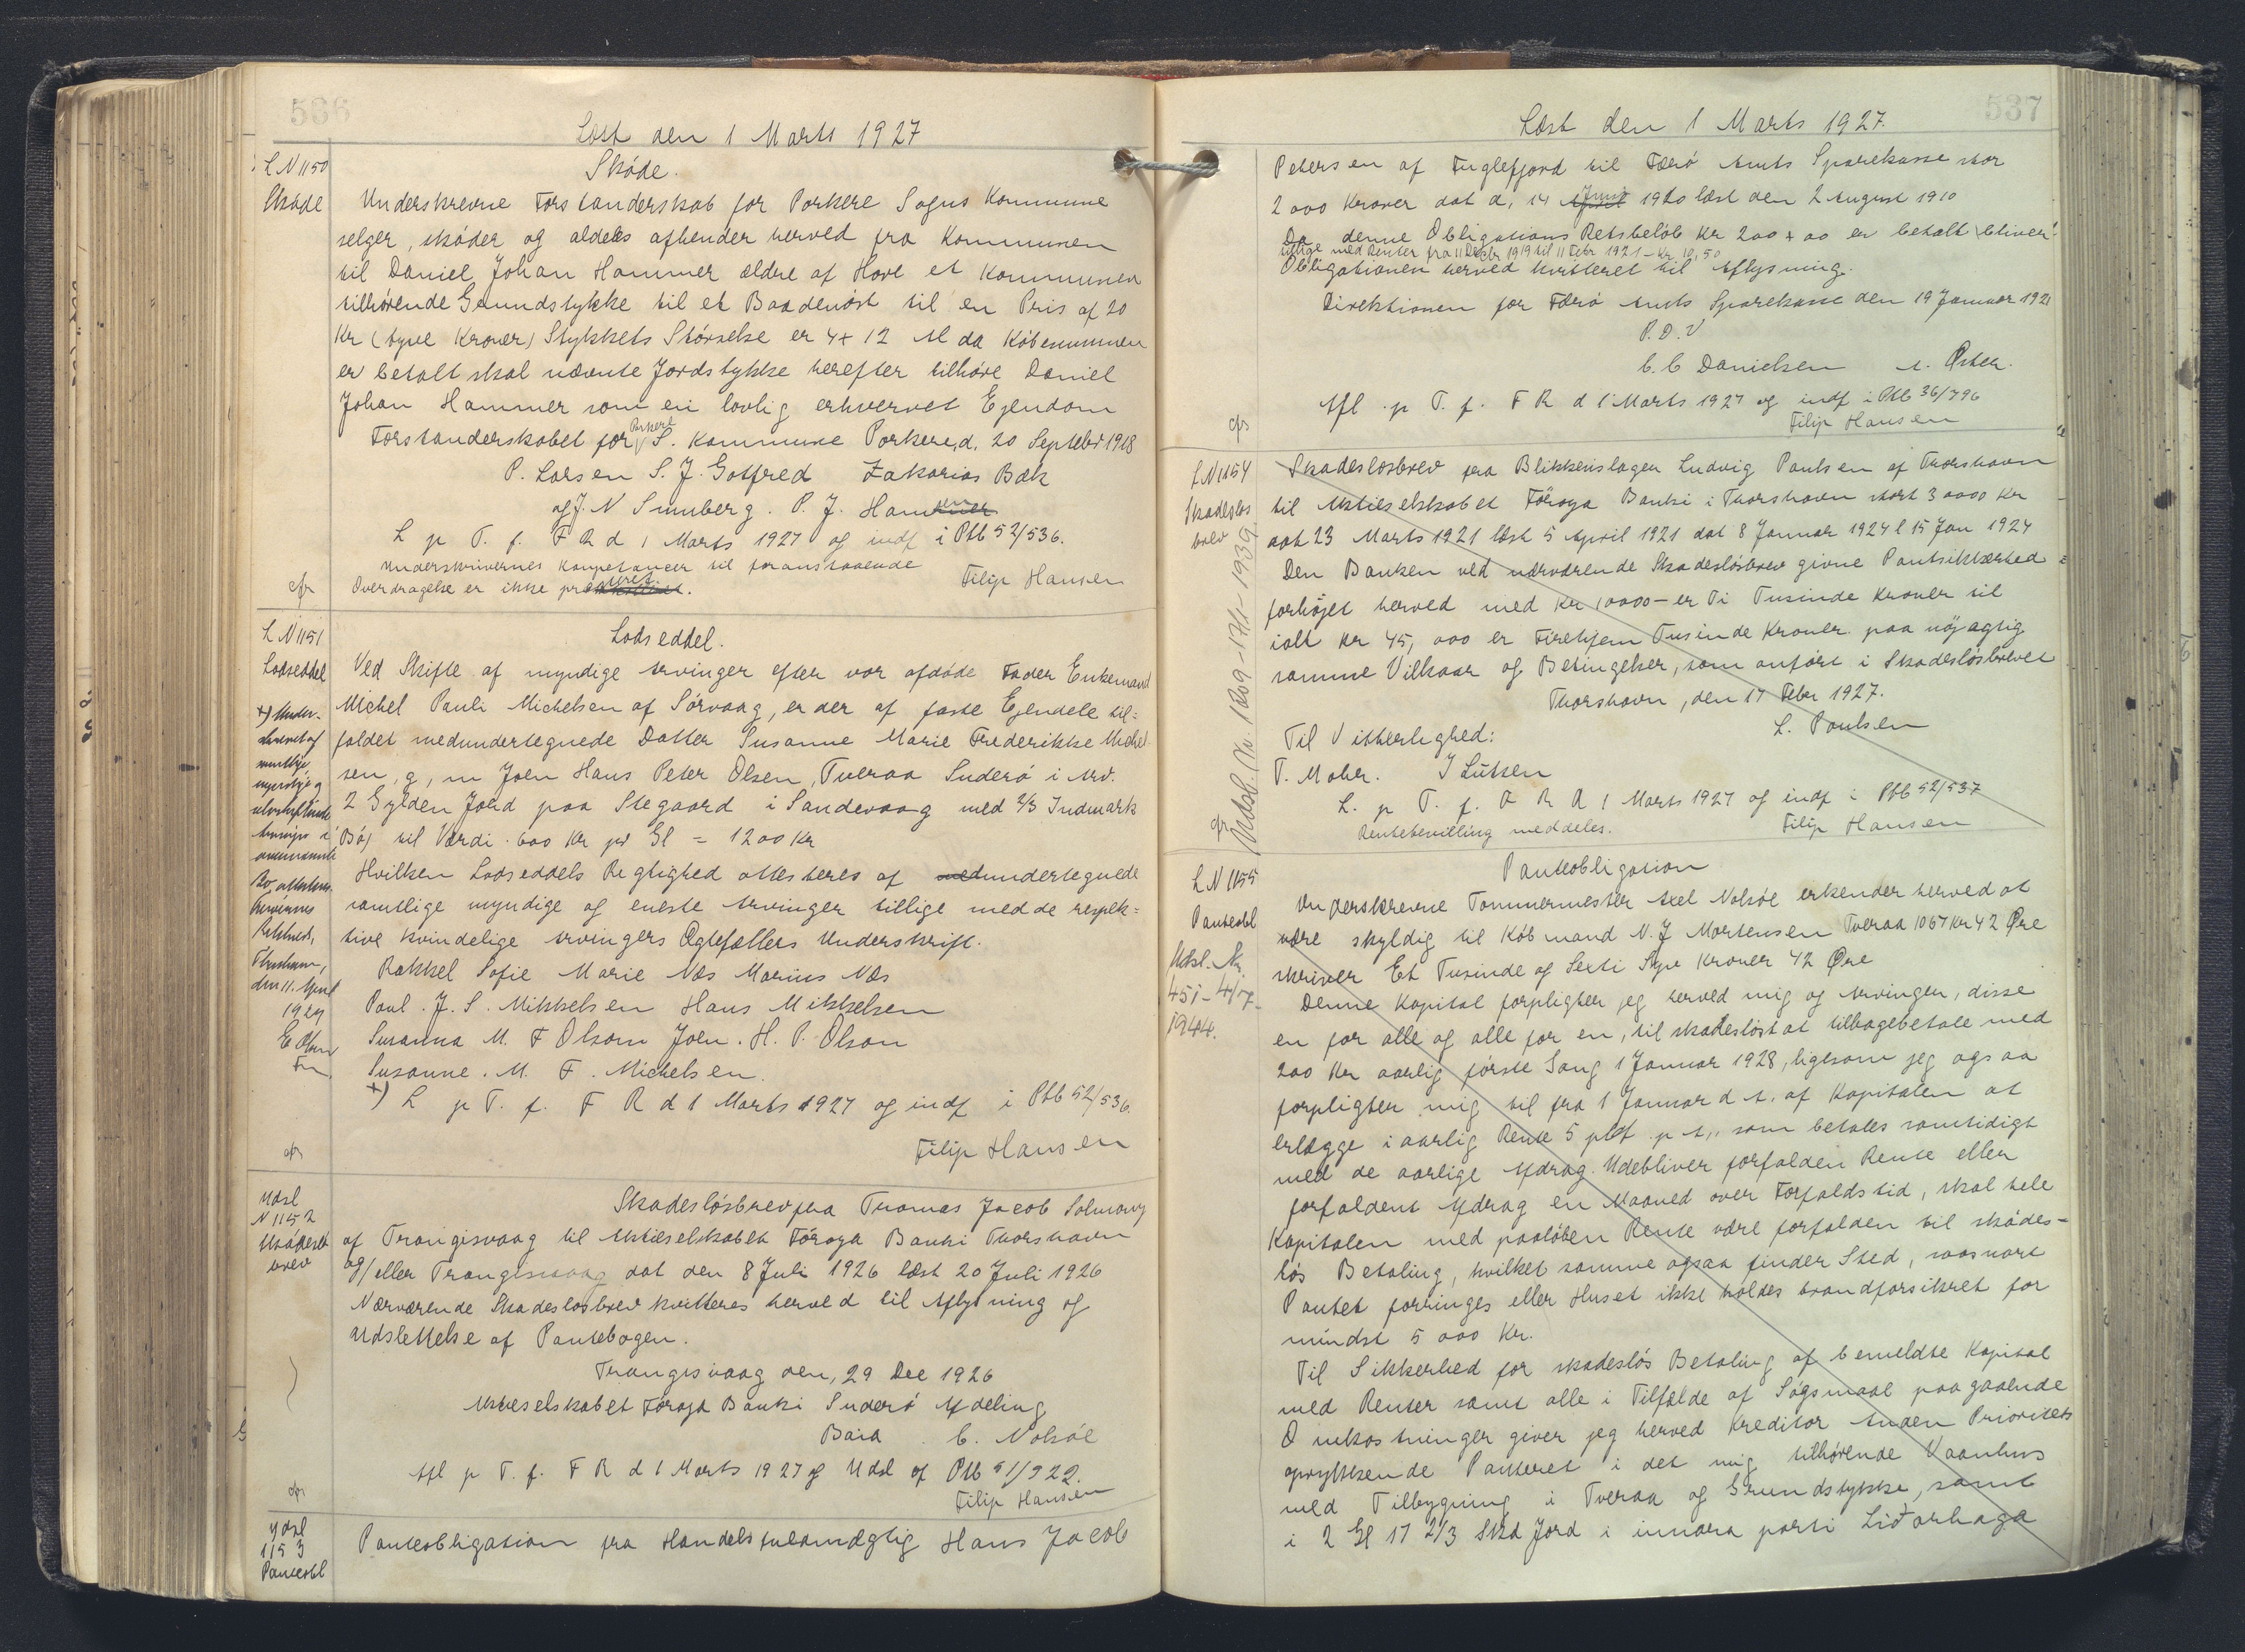 536
Læst den 1 Marts 1927
L N 1150
Skøde
Skøde.
Underskrevne Forstanderskab for Porkere Sogns Kommune
selger, skøder og aldeles afhender herved fra Kommunen
til Daniel Johan Hammer ældre af Hove et Kommunen
tilhørende Grundstykke til et Baadenøst til en Pris af 20
Kr (tyve Kroner) Stykkets Størrelse er 4 + 12 Al da Købesummen
er betalt skal nævnte Jordstykke herefter tilhøre Daniel
Johan Hammer som en lovlig erhvervet Ejendom
Forstanderskabet for Porkere S. Kommune Porkere, d. 20 Septebr 1918
P. Larsen S. J. Gotfred Zakarias Bæk
og J. N Sunnberg. P. J. Ham
L p T. f. F R d 1 Marts 1927 og indf i Ptb 52/536.
Underskrivernes Kompetancer til foranstaaende
Overdragelse er ikke
Filip Hansen
cfr
L N 1151
Lodseddel
Lodseddel.
Ved Skifte af myndige Arvinger efter vor afdøde Fader Enkemand
Michel Pauli Michelsen af Sørvaag, er der af faste Ejendele til=
faldet medundertegnede Datter Susanne Marie Frederikke Michel-
sen, g, m Joen Hans Peter Olsen, Tveraa Suderø i Arv.
2 Gylden Jord paa Stegaard i Sandevaag med 2/3 Indmark
Bø) til Værdi 600 Kr pr Gl = 1200 Kr
Hvilken Lodseddels Rigtighed attesteres af medundertegnede
samtlige myndige og eneste Arvinger tillige med de respek=
tive kvindelige Arvingers Ægtefællers Underskrift.
Rakkel Sofie Marie Næs Marius Næs
Poul. J. S. Mikkelsen Hans Mikkelsen
Susanna M. F Olsom Joen. H. P. Olson
Susanne. M. F. Michelsen.
+) L p T. f. F R d 1 Marts 1927 og indf i Ptb 52/536.
Filip Hansen
+) Under-
skrevet af
Thorshavn,
den 11. April
1927
cfr
Udsl
N 1152
Skadesl
brev
Skadesløsbrev fra Thomas Jacob Solmony
af Trangisvaag til Aktieselskabet Føroya Banki Thorshavn
og/eller Trangisvaag dat den 8 Juli 1926 læst 20 Juli 1926
Nærværende Skadesløsbrev kvitteres herved til Aflysning og
Udslettelse af Pantebogen.
Trangisvaag den, 29 Dec 1926
Aktieselskabet Føroya Banki Suderø Afdeling
C. Nolsøe
Afl p T. f. F R d 1 Marts 1927 og Udsl af Ptb 51/922.
Filip Hansen
cfr
Udsl
1153
Panteobl
Panteobligation fra Handelsfuldmægtig Hans Jacob
537
Læst den 1 Marts 1927.
Petersen af Fuglefjord til Færø Amts Sparekasse stor
2000 Kroner dat d. 14 Juni 1910 læst den 2 August 1910
Da denne Obligations Restbeløb Kr 200 + 00 er betalt bliver
tillige med Renter fra 11 Decbr 1919 til 11 Febr 1921 - Kr. 10,50
Obligationen herved kvitteret til Aflysning.
Direktionen for Færø Amts Sparekasse den 19 Januar 1921
P. D. V
C. C Danielsen A. Øster.
Afl p T. f. F R d 1 Marts 1927 og indf i Ptb 36/796
Filip Hansen
cfr
L N 1154
Skadesløs
brev
Udsl. Nr. 1209 - 17/1 - 1939
Skadesløsbrev fra Blikkenslager Ludvig Paulsen af Thorshavn
til Aktieselskabet Føroya Banki i Thorshavn stort 30000 Kr
dat 23 Marts 1921 læst 5 April 1921 dat 8 Januar 1924 l 15 Jan 1924
Den Banken ved nærværende Skadesløsbrev givne Pantsikkerhed =
forhøjet herved med Kr 10000 - er Ti Tusinde Kroner til
ialt Kr 45,000 er Firehfem Tusinde Kroner paa nøjagtig
samme Vilkaar og Betingelser, som anført i Skadesløsbrevet
Thorshavn, den 17 Febr 1927.
Til Vitterlighed:
L. Paulsen
T. Mohr. J Lützen
L. p T. f. F R d 1 Marts 1927 og indf i Ptb 52/537
Rentebevilling meddeles.
Filip Hansen
cfr
L N 1155
Panteobl
Udsl. Nr.
451 - 4/7 -
1944.
Panteobligation
Underskrevne Tømmermester Axel Nolsøe erkender herved at
være skyldig til Købmand N. J Mortensen Tveraa 1067 Kr 42 Øre
skriver Et Tusinde og Sexti Syv Kroner 42 Øre
Denne Kapital forpligter jeg herved mig og Arvinger, disse
en for alle og alle for en, til skadesløst at tilbagebetale med
200 Kr aarlig første Gang 1 Januar 1928, ligesom jeg ogsaa
forpligter mig til fra 1 Januar d A. af Kapitalen at
erlægge i aarlig Rente 5 pCt p A., som betales samtidigt
med de aarlige Afdrag. Udebliver forfalden Rente eller
forfaldent Afdrag en Maaned over Forfaldstid, skal hele
Kapitalen med paaløben Rente være forfalden til skades-
løs Betaling, hvilket samme ogsaa finder Sted, saasnart
Pantet forringes eller Huset ikke holdes brandforsikret for
mindst 5000 Kr.
Til Sikkerhed for skadesløs Betaling af bemeldte Kapital
med Renter samt alle i Tilfælde af Søgsmaal paagaaende
Omkostninger giver jeg herved Kreditor Anden Prioritets
oprykkende Panteret i det mig tilhørende Vaanhus
med Tilbygning i Tveraa og Grundstykke, samt
i 2 Gl 17 2/3 Skd Jord i innara parti Liðarhaga